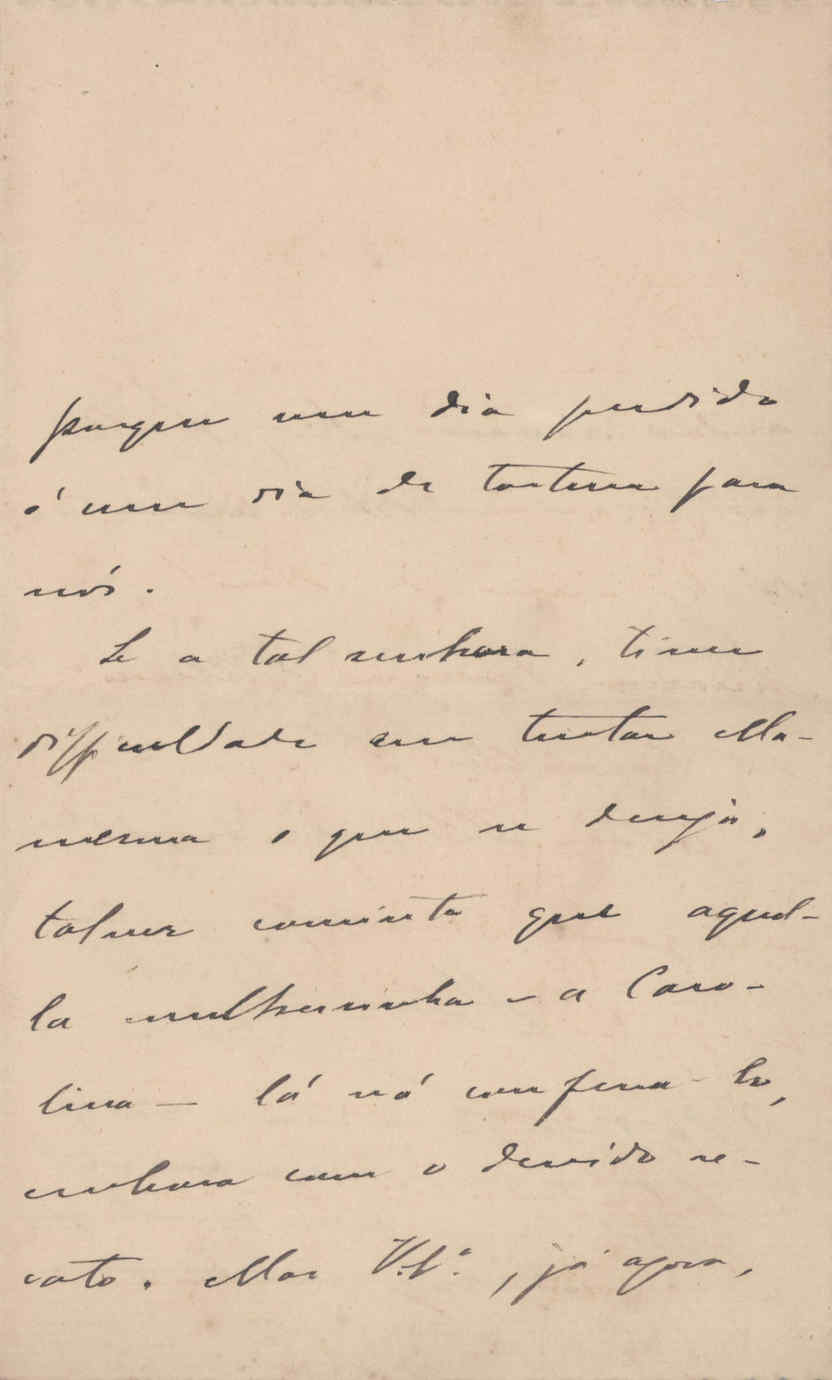 porque um dia perdido
é um dia de tortura para
nós.
Se a tal senhora, tiver
difficuldade em tentar ella-
mesma o que se deseja,
talvez consinta que aquel-
la mulhersinha – a Caro-
lina – lá vá conferen-
embora com o devido re-
cato. Mas V. , já agora,